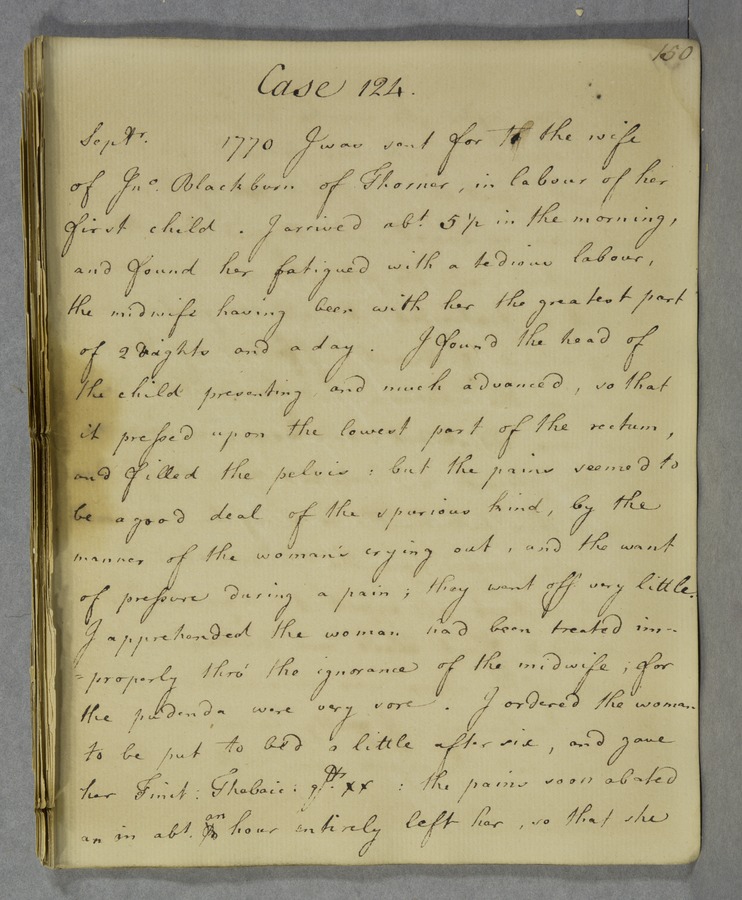 150
Case 124.
Septr. 1770 I was sent for to the wife
of Jno. Blackburn of Thorner, in labour of her
first child. I arrived abt. 5 1/2 in the morning,
and found her fatigued with a tedious labour,
the midwife having been with her the greatest part
of 2 nights and a day. I found the head of
the child presenting and much advanced, so that
it pressed upon the lowest part of the rectum,
and filled the pelvis: but the pains seemed to
be a good deal of the spurious kind, by the
manner of the woman's crying out, and the want
of pressure during a pain; they went off very little.
I apprehended the woman had been treated im-
=properly thro' the ignorance of the midwife; for
the pudenda were very sore. I ordered the woman
to be put to bed a little after six, and gave
her Tinct: Thebaic: gtt. xx: the pains soon abated
an in abt. an hour entirely left her, so that she